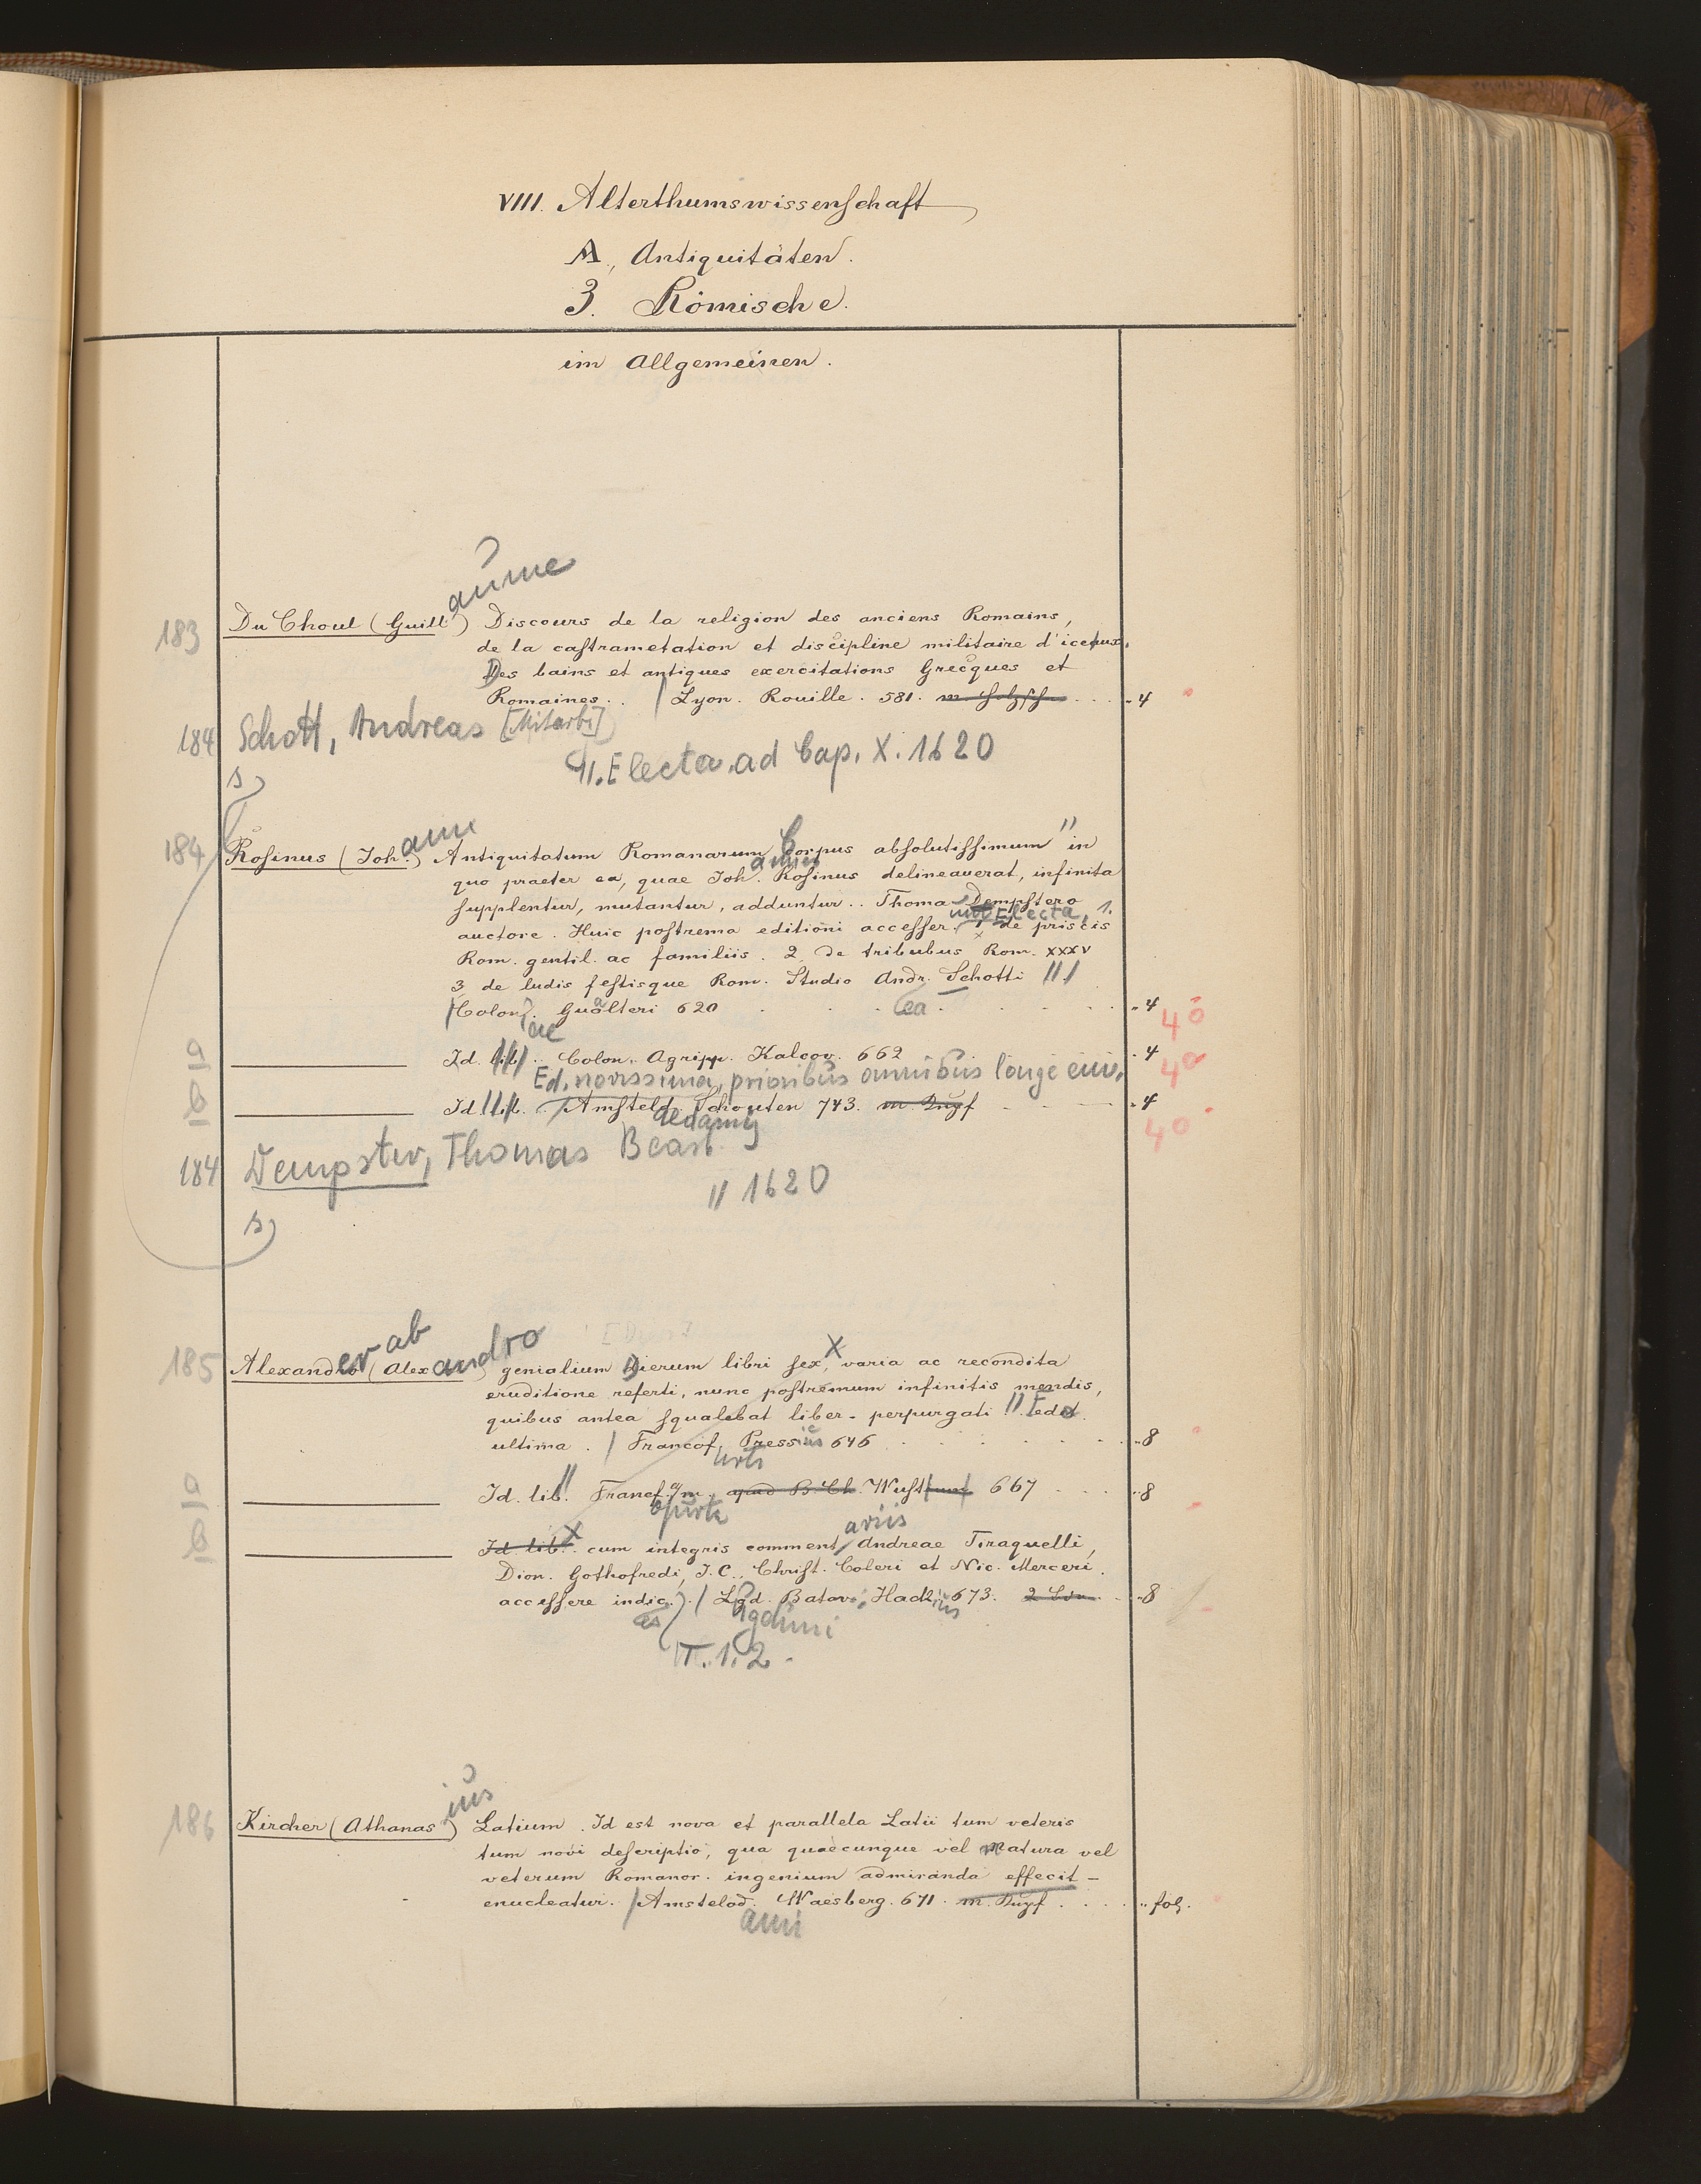 VIII. Alterthumswissenschaft
A., Antiquitäten.
3. Römische.
im Allgemeinen.
183 Du Choul (Guillaume) Discours de la religion des anciens Romains,
de la castrametation et discipline militaire d'iceux.
Des bains et antiques exercitations Grecques et
Romaines. / Lyon. Rouille. 581. 4
184 Schott, Andreas [Mitarb.]
s) 11. Electa ad Cap. X. 1620
184 Rosinus (Johann) Antiquitatum Romanarum Corpus absolutissimum " in
quo praeter ea, quae Joh. Rosinus delineaverat, infinita
supplentur, mutantur, adduntur.. Thoma Dempstero
auctore. Huic postrema editioni accesser. Electa, 1. de priscis
Rom. gentil. ac familiis. 2. de tribubus Rom. XXXV
3 de ludis festisque Rom. Studio Andr. Schotti ///
/Coloniae. Gualteri 620 4 40
a Id. lib. Colon. Agripp. Kalcov. 662 4 40
Ed. novissima, prioribus omnibus longe
b Id. lib. / Amsteld. Schouten 743. 4 40
184 Dempster, Thomas
s) " 1620
185 Alexander ab (Alexandro) genialium Dierum libri sex, X varia ac recondita
eruditione referti, nunc postremum infinitis mendis,
quibus antea squalebat liber - perpurgati. " Ed.
ultima. / Francofurti Pressius 646 8
a Id. lib. " Francf. a/m. apud B. Ch. Wust 667 8
b Id lib. X cum integris commentariis Andreae Tiraquelli,
Dion. Gothofredi, J. C., Christ. Coleri et Nic. Merceri.
accessere indices) / Lgd. Batav. Hack 673. 8
T. 1. 2.
186 Kircher (Athanasius) Latium. Id est nova et parallela Latii tum veteris
tum novi descriptio, qua quaecunque vel Natura vel
veterum Romanor. ingenium admiranda effecit -
enucleatur. / Amstelodami Waesberg. 671. fol.